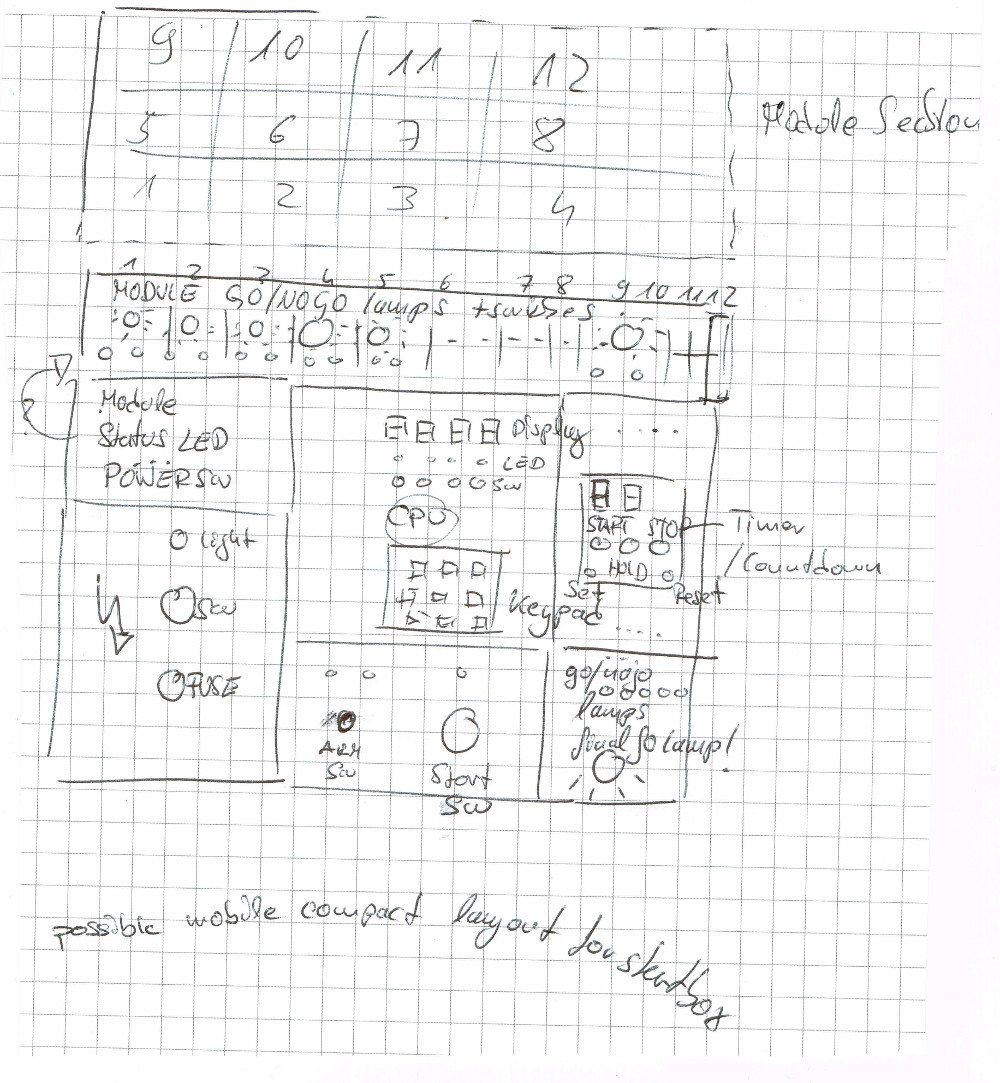 9 10 11 12
5 6 7 8
Module Section
1 2 3 4
1 2 3 4 5 6 7 8 9 10 11 12
MODULE GO/NOGO lamps +switches
Module
Status LED
POWER SW
Display
LED
SW
CPU
Keypad
START STOP
HOLD
Set Reset
Timer
/Countdown
Light
SW
FUSE
ARM
SW
Start
SW
go/nogo
lamps
final GO lamp!
possible mobile compact layout for stuntbox